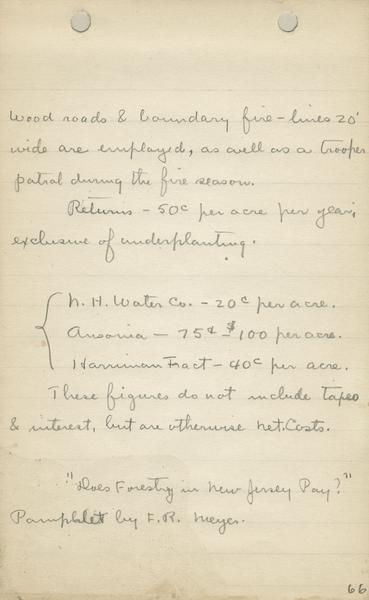 Wood roads & boundary fire-lines 20'
wide are employed, as well as a trooper
patrol during the fire season.
Returns - 50¢ per acre per year,
exclusive of underplanting.
N. H. Water Co. - 20¢ per acre.
Ansonia - 75¢ - $100 per acre.
Harriman Tract - 40¢ per acre.
These figures do not include taxes
& interest, but are otherwise net. Costs.
"Does Forestry in New Jersey Pay?"
Pamphlet by F. R. Meyer.
66